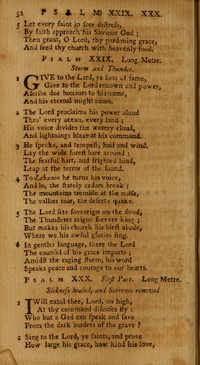 52 PSALM XXIX. XXX.
5 Let every saint in sore distress,
By faith approach his Saviour God;
Then grant, O Lord, thy pardoning grace,
And feed thy church with heavenly food.
PSALM XXIX. Long Metre.
Storm and Thunder.
1 GIVE to the Lord, ye sons of fame,
Give to the Lord renown and power,
Ascribe due honours to his name,
And his eternal might adore.
2 The Lord proclaims his power aloud
Thro' every ocean, every land;
His voice divides the watery cloud,
And lightnings blaze at his command.
3 He speaks, and tempest, hail and wind.
Lay the wide forest bare around:
The fearful hart, and frighted hind,
Leap at the terror of the sound.
4 To Lebanon he turns his voice,
And lo, the stately cedars break;
The mountains tremble at the noise,
The vallies roar, the deserts quake.
5 The Lord sits sovereign on the flood,
The Thunderer reigns forever king;
But makes his church his blest abode,
Where we his awful glories sing.
6 In gentler language, there the Lord
The counsel of his grace imparts;
Amidst the raging storm, his word
Speaks peace and courage to our hearts.
PSALM XXX. First Part. Long Metre.
Sickness healed, and Sorrows removed
1 I Will extol thee, Lord, on high,
At thy command diseases fly:
Who but a God can speak and save
From the dark borders of the grave?
2 Sing to the Lord, ye saints, and prove
How large his grace, how kind his love,